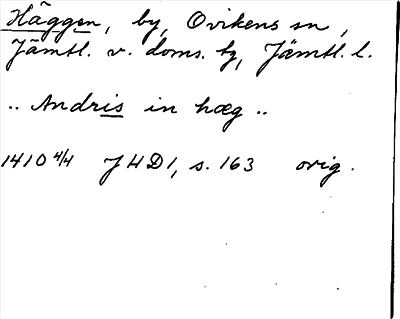 Häggen, by, Ovikens sn,
Jämtl. v. doms. tg, Jämtl. l.
.. Andris in hæg ..
1410 4/4 JHD1, s. 163 orig.